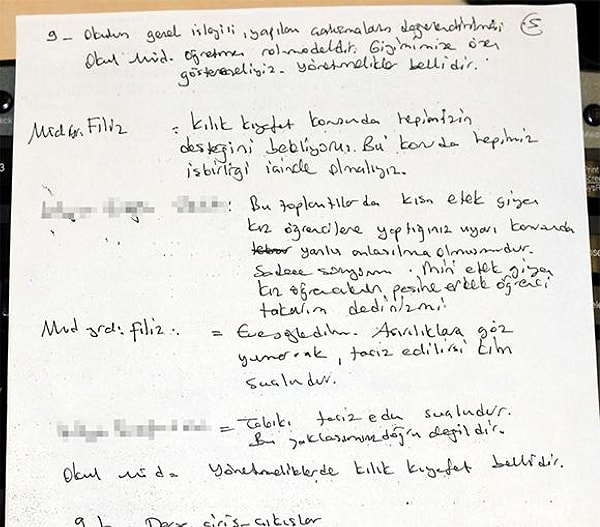 9- Okulun genel işleyişi, yapılan çalışmaların değerlendirilmesi
5
Okul Müd. öğretmen rol modeldir. Giyimimize özen
göstermeliyiz. Yönetmelikler bellidir.
Müd. yrd. Filiz = Kılık kıyafet konusunda hepimizin
desteğini bekliyorum. Bu konuda hepimiz
işbirliği içinde olmalıyız.
: Bu toplantılarda kısa etek giyen
kız öğrencilere yaptığınız uyarı konusunda
yanlış anlaşılma olmuşmudur.
Sadece soruyorum. Mini etek giyen
kız öğrencilerin peşine erkek öğrenci
takarım dedinizmi?
Müd yrd. Filiz = Evet söyledim. Aşırılıklara göz
yumarak, taciz edilirse kim
suçludur.
= Tabiki taciz eden suçludur.
Bu yaklaşımınız doğru değildir.
Okul Müd. Yönetmeliklerde kılık kıyafet bellidir.
Ders giriş-çıkışlar